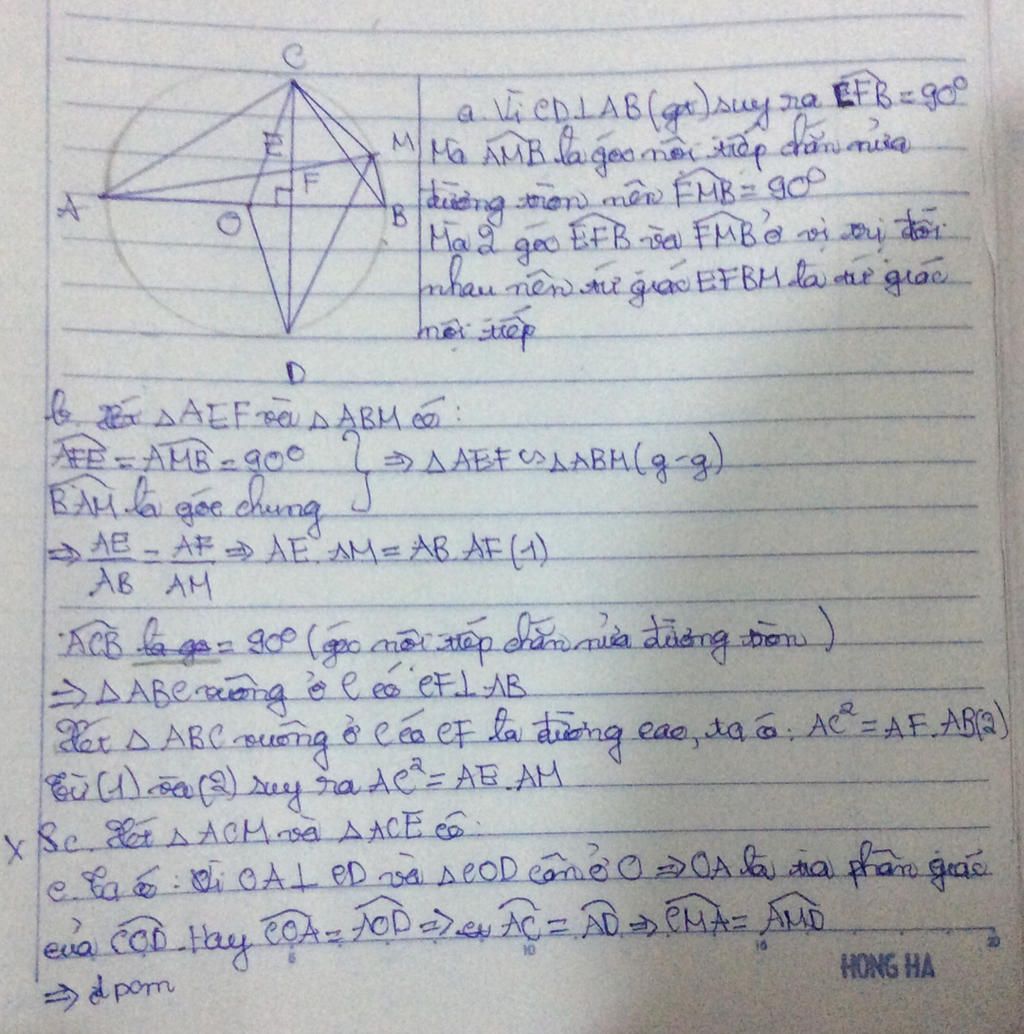 C
E
M
F
A
O
B
D
a. Vì CD⊥AB(gt) suy ra EFB = 90°
Mà AMB là góc nội tiếp chắn nửa
đường tròn nên FMB = 90°
Mà 2 góc EFB và FMB ở vị trị đối
nhau nên tứ giác EFBM là tứ giác
nội tiếp
b. Xét △AEF và △ABM có:
AFE = AMB = 90° } ⇒ △AEF ∽ △ABM (g-g)
BAM là góc chung
⇒ AE/AB = AF/AM ⇒ AE. AM = AB. AF (1)
ACB là gó = 90° (góc nội tiếp chắn nửa đường tròn)
⇒ △ABC vuông ở C có CF⊥AB
Xét △ABC vuông ở C có CF là đường cao, ta có: AC² = AF.AB(2)
Từ (1) và (2) suy ra AC² = AE.AM
X Bc. Xét △ACM và △ACE có:
c. Ta có: Vì OA⊥CD và △COD cân ở O ⇒ OA là tia phân giác
của COD. Hay COA = AOD ⇒ AC = AD ⇒ CMA = AMD
⇒ đpcm
5 10 15 20
HONG HA